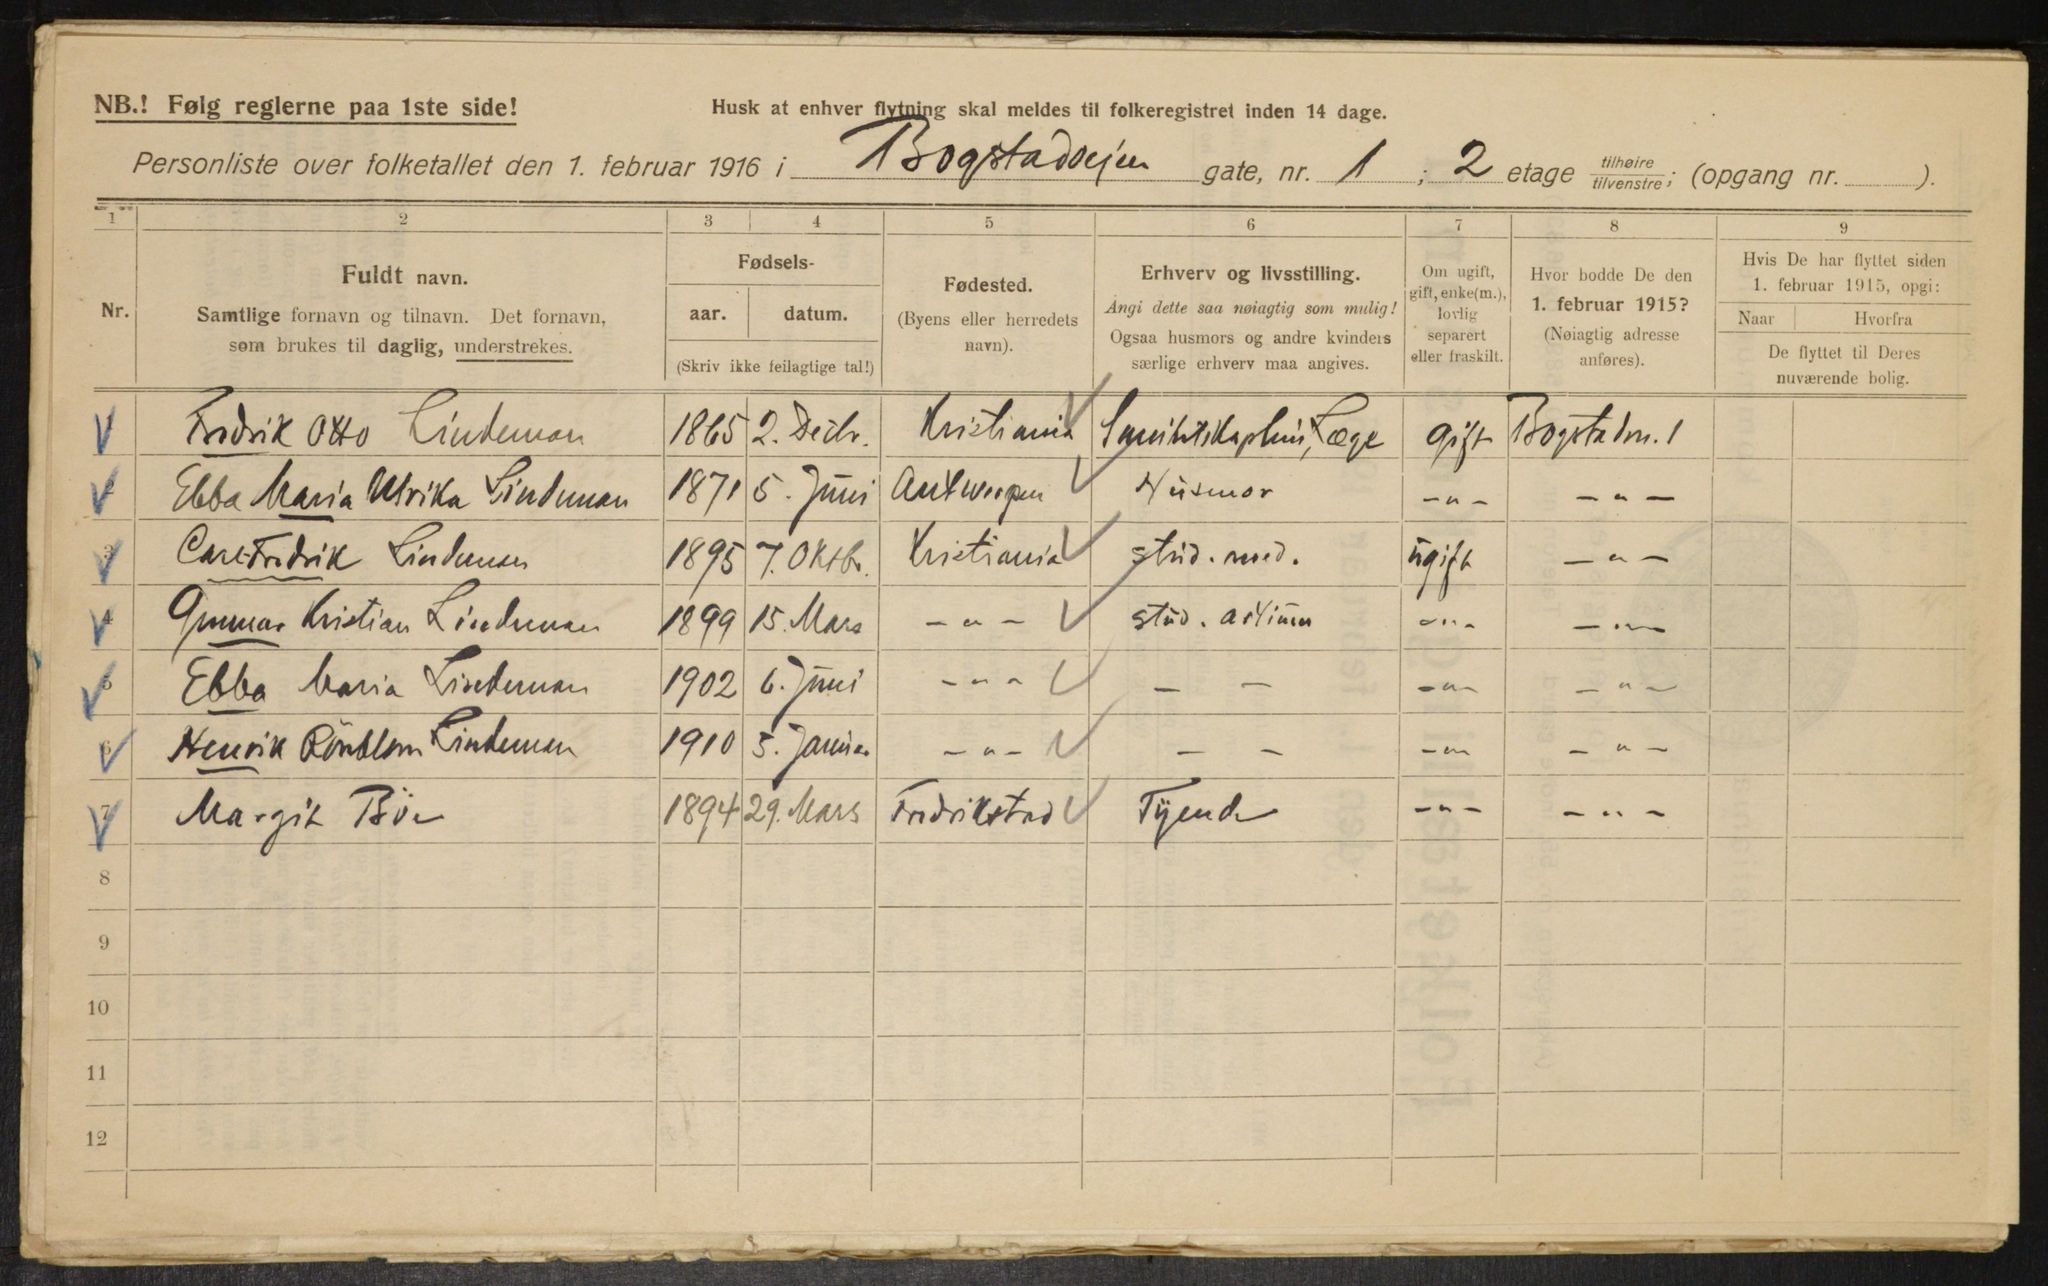 NB.! Følg reglerne paa 1ste side!
Husk at enhver flytning skal meldes til folkeregistret inden 14 dage.
Personliste over folketallet den 1. februar 1916 i Bogstadveien gate, nr. 1 ; 2 etage tilhøire / tilvenstre; (opgang nr. ).
1 2 3 4 5 6 7 8 9
Nr.
Fuldt navn.
Samtlige fornavn og tilnavn. Det fornavn,
som brukes til daglig, understrekes.
Fødsels-
aar. datum.
(Skriv ikke feilagtige tal!)
Fødested.
(Byens eller herredets
navn).
Erhverv og livsstilling.
Angi dette saa nøiagtig som mulig!
Ogsaa husmors og andre kvinders
særlige erhverv maa angives.
Om ugift,
gift, enke(m.),
lovlig
separert
eller fraskilt.
Hvor bodde De den
1. februar 1915?
(Nøiagtig adresse
anføres).
Hvis De har flyttet siden
1. februar 1915, opgi:
Naar Hvorfra
De flyttet til Deres
nuværende bolig.
Fredrik Otto Lindeman 1865 2. Decbr. Kristiania Læge gift Bogstadvn. 1
2 Ebba Maria Ulrika Lindeman 1871 5. Juni Antwerpen Husmor -"- -"-
3 Carl Fredrik Lindeman 1895 7. Oktbr. Kristiania stud. med. ugift -"-
4 Gunnar Kristian Lindeman 1899 15. Mars -"- stud. artium -"- -"-
5 Ebba Maria Lindeman 1902 6. Juni -"- - - -"- -"-
6 Henrik Lindeman 1910 5. Januar -"- - - -"- -"-
7 Margit Böe 1894 29. Mars Fredrikstad Tyende -"- -"-
8
9
10
11
12